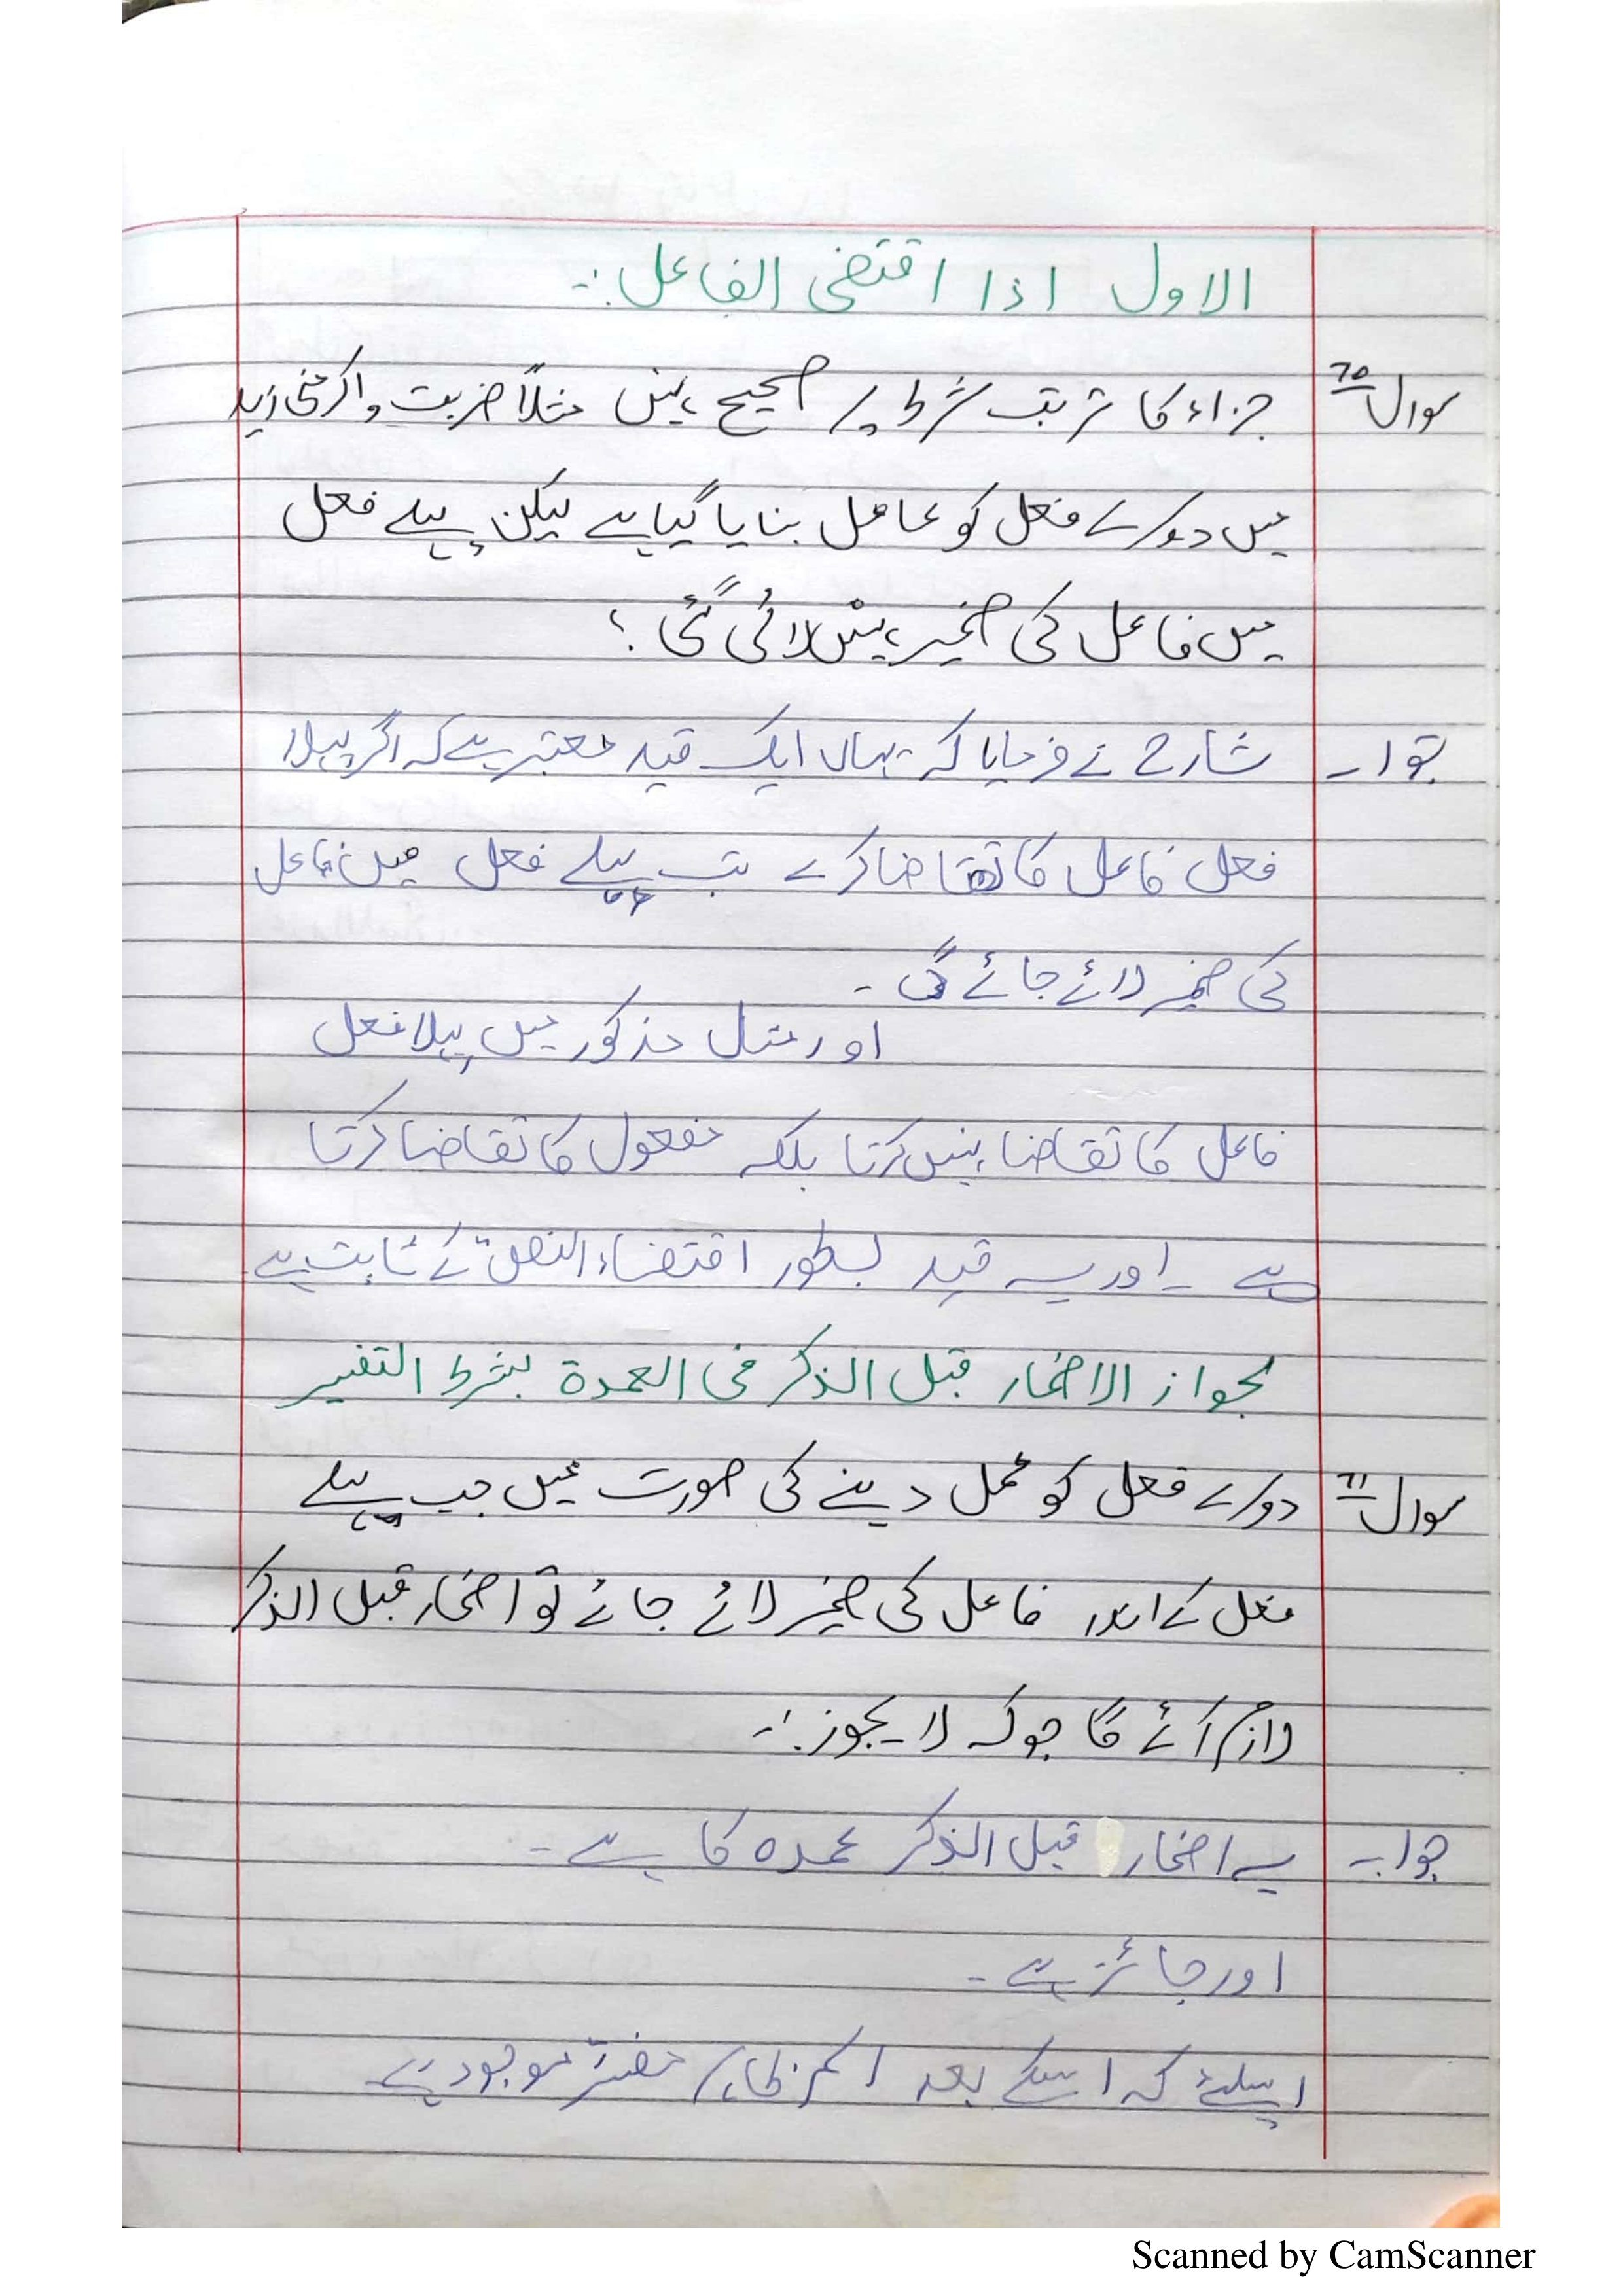 الاول اذا اقتضى الفاعل :۔
سوال 70 جزاء کا ترتب شرط پر صحیح نہیں مثلاً ضربت و اکرمنی زید
میں دوسرے فعل کو عامل بنایا گیا ہے لیکن پہلے فعل
میں فاعل کی ضمیر نہیں لائی گئی ؟
جواب۔ شارح نے فرمایا کہ یہاں ایک قید معتبر ہے کہ اگر پہلا
فعل فاعل کا تقاضا کرے تب پہلے فعل میں فاعل
کی ضمیر لائے جائے گی ۔
اور مثال مذکور میں پہلا فعل
فاعل کا تقاضا نہیں کرتا بلکہ مفعول کا تقاضا کرتا
ہے ۔ اور یہ قید بطور اقتضاء النص کے ثابت ہے۔
لجواز الاضمار قبل الذکر فی العمدة بشرط التفسیر
سوال 71 دوسرے فعل کو عمل دینے کی صورت میں جب پہلے
فعل کے اندر فاعل کی ضمیر لائے جائے تو اضمار قبل الذکر
لازم آئے گا جو کہ لا یجوز :۔
جواب۔ یہ اضمار قبل الذکر عمدہ کا ہے ۔
اور جائز ہے ۔
اسلئے کہ اسکے بعد اسم ظاہر مفسِّر موجود ہے
Scanned by CamScanner